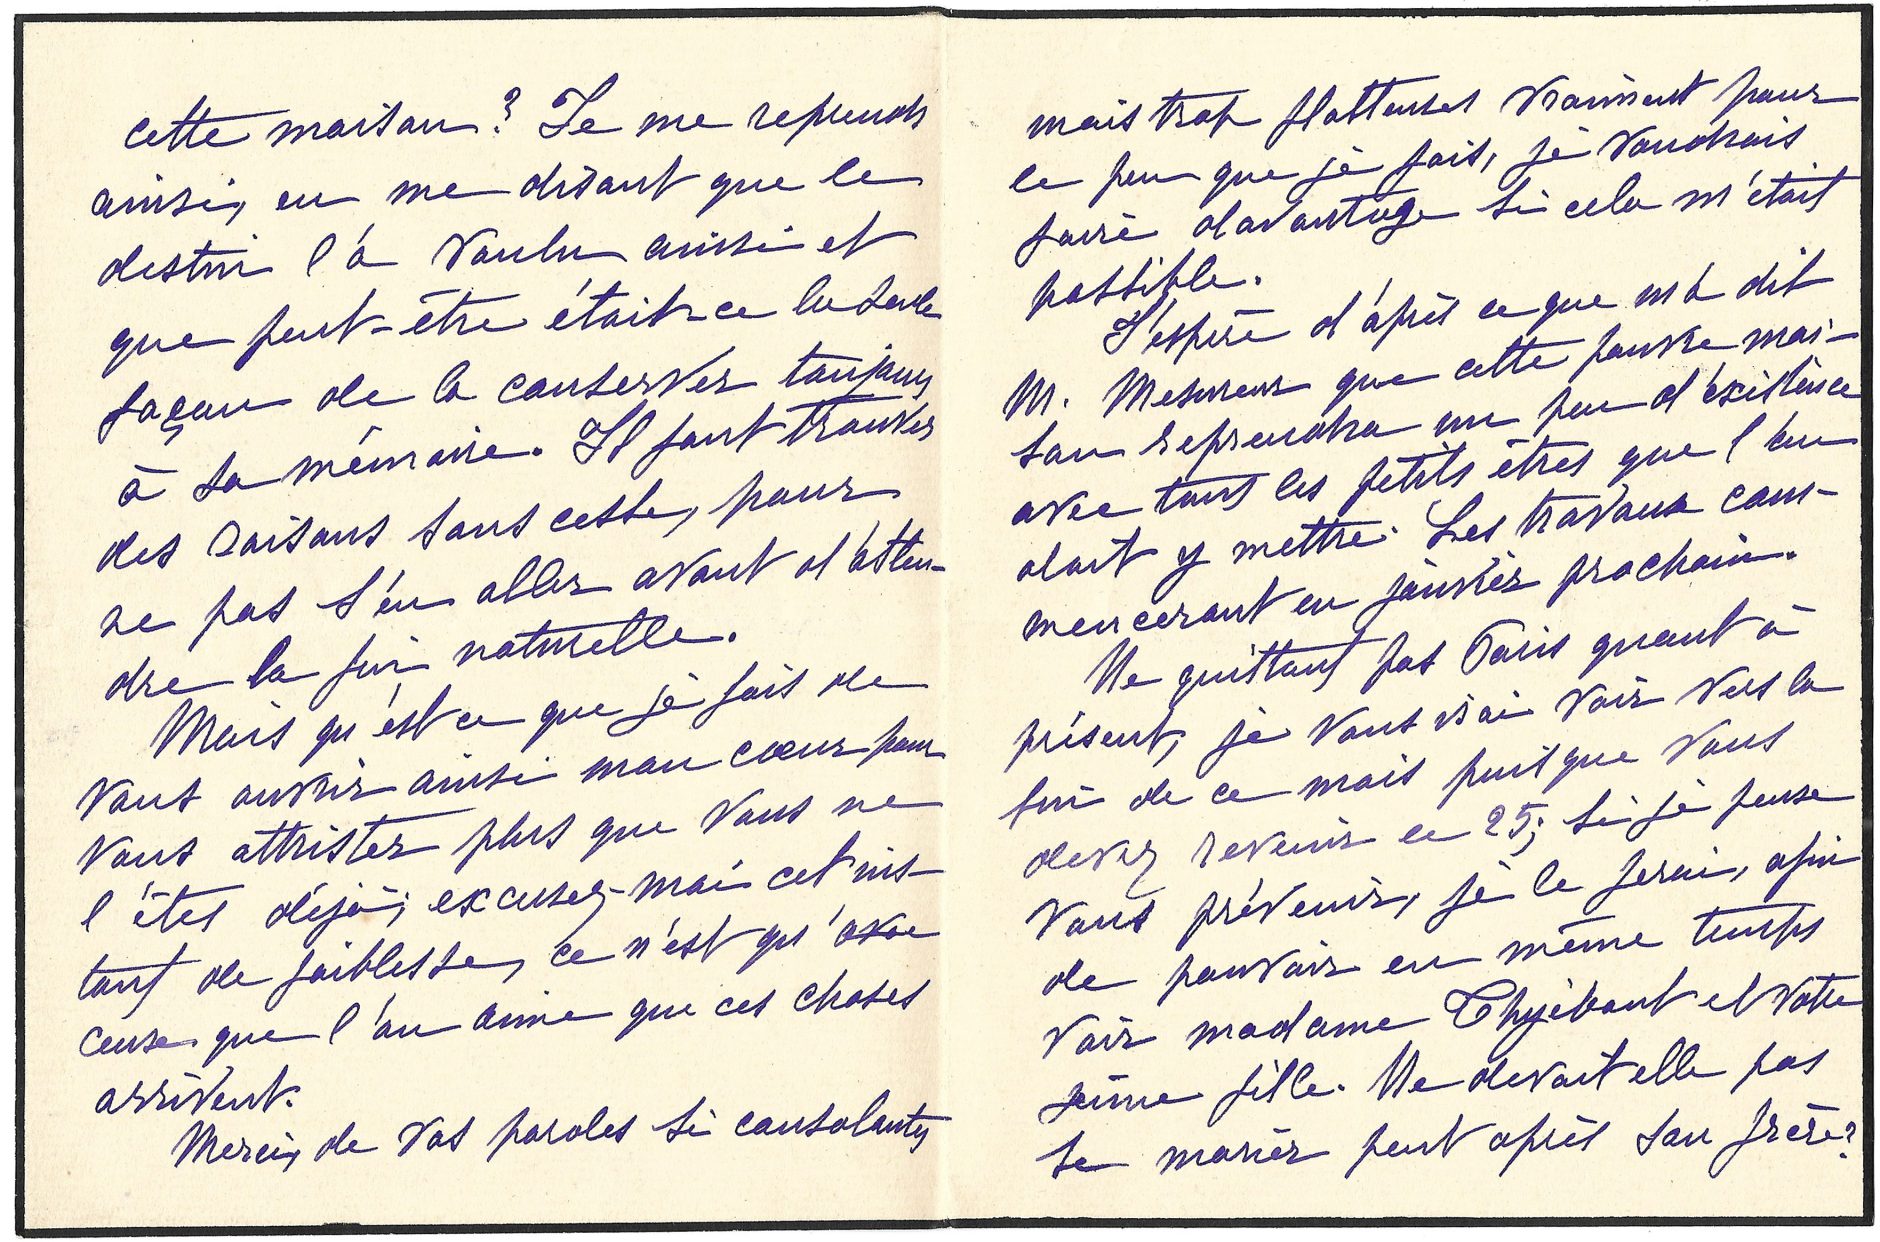 cette maison ? Je me reprends
ainsi, en me disant que le
destin l'a voulu ainsi et
que peut-être était-ce la seule
façon de la conserver toujours
à sa mémoire. Il faut trouver
des raisons sans cesse, pour
ne pas s'en aller avant d'atten-
dre la fin naturelle.
Mais qu'est ce que je fais de
vous ouvrir ainsi mon cœur pour
vous attrister plus que vous ne
l'êtes déjà; excusez-moi cet ins-
tant de faiblesse, ce n'est qu'avec
ceux que l'on aime que ces choses
arrivent.
Merci, de vos paroles si consolantes
mais trop flatteuses vraiment pour
le peu que je fais, je voudrais
faire davantage si cela m'était
possible.
J'espère d'après ce que m'a dit
M. Mesureur que cette pauvre mai-
son reprendra un peu d'existence
avec tous les petits êtres que l'on
doit y mettre. Les travaux com-
menceront en janvier prochain.
Ne quittant pas Paris quant à
présent, je vous irai voir vers la
fin de ce mois puisque vous
devez revenir le 25; si je pense
vous prévenir, je le ferai, afin
de pouvoir en même temps
voir madame Thyébaut et votre
jeune fille. Ne devait elle pas
se marier peut après son frère?